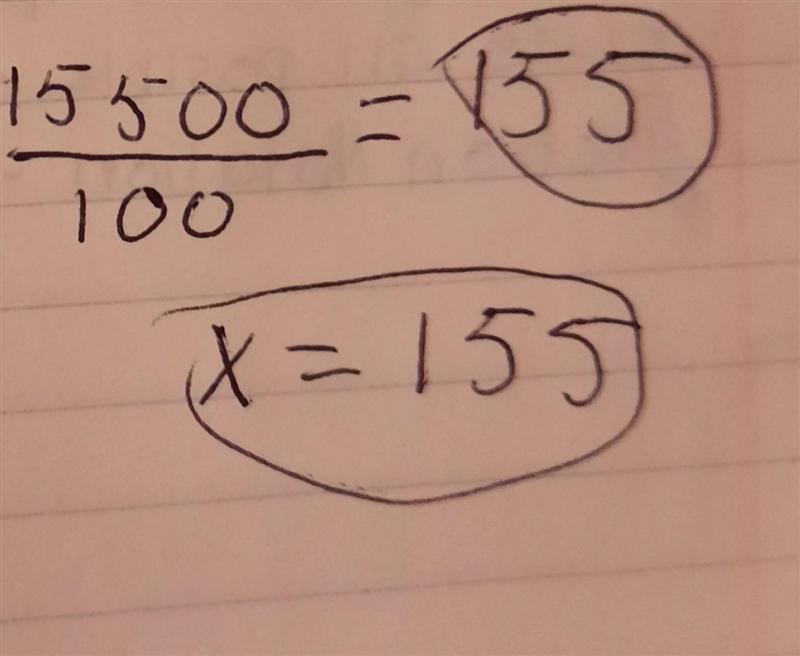 15500/100 = 155
x = 155